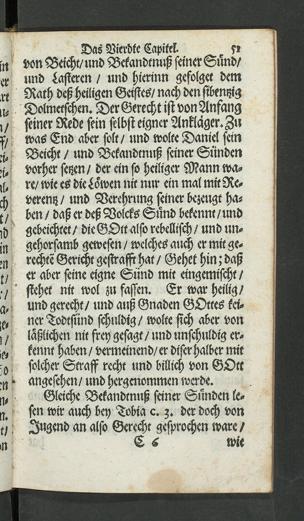 Das Vierdte Capitel. 51
von Beicht/ und Bekandtnuß seiner Sünd/
und Lasteren / und hierinn gefolget dem
Rath deß heiligen Geistes/ nach den sibentzig
Dolmetschen. Der Gerecht ist von Anfang
seiner Rede sein selbst eigner Ankläger. Zu
was End aber solt / und wolte Daniel sein
Beicht / und Bekandtnuß seiner Sünden
vorher setzen/ der ein so heiliger Mann wa-
re/ wie es die Löwen nit nur ein mal mit Re-
verentz/ und Verehrung seiner bezeugt ha-
ben / daß er deß Volcks Sünd bekennt/ und
gebeichtet / die GOtt also rebellisch/ und un-
gehorsamb gewesen/ welches auch er mit ge-
rechtē Gericht gestrafft hat / Gehet hin; daß
er aber seine eigne Sünd mit eingemischt/
stehet nit wol zu fassen. Er war heilig/
und gerecht/ und auß Gnaden GOttes kei-
ner Todtsünd schuldig / wolte sich aber von
läßlichen nit frey gesagt/ und unschuldig er-
kennt haben/ vermeinend/ er diser halber mit
solcher Straff recht und billich von GOtt
angesehen/ und hergenommen werde.
Gleiche Bekandtnuß seiner Sünden le-
sen wir auch bey Tobia c. 3. der doch von
Jugend an also Gerecht gesprochen ware/
C 6 wie